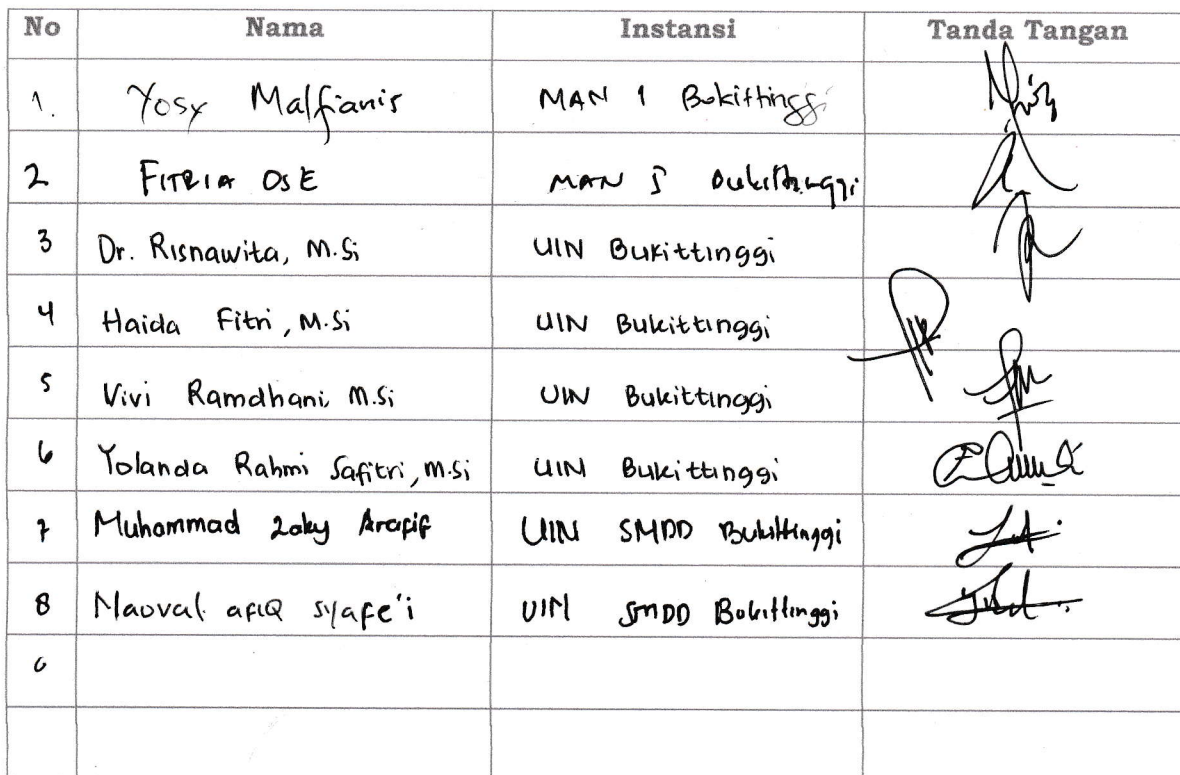 No Nama Instansi Tanda Tangan
1. Yosy Malfianis MAN 1 Bukittinggi
2 FITRIA OSE MAN 1 Bukittinggi
3 Dr. Risnawita, M.Si UIN Bukittinggi
4 Haida Fitri, M.Si UIN Bukittinggi
5 Vivi Ramdhani, M.Si UIN Bukittinggi
6 Yolanda Rahmi Safitri, M.Si UIN Bukittinggi
7 Muhammad Zaky Arafif UIN SMDD Bukittinggi
8 Maoval afiQ syafe'i UIN SMDD Bukittinggi